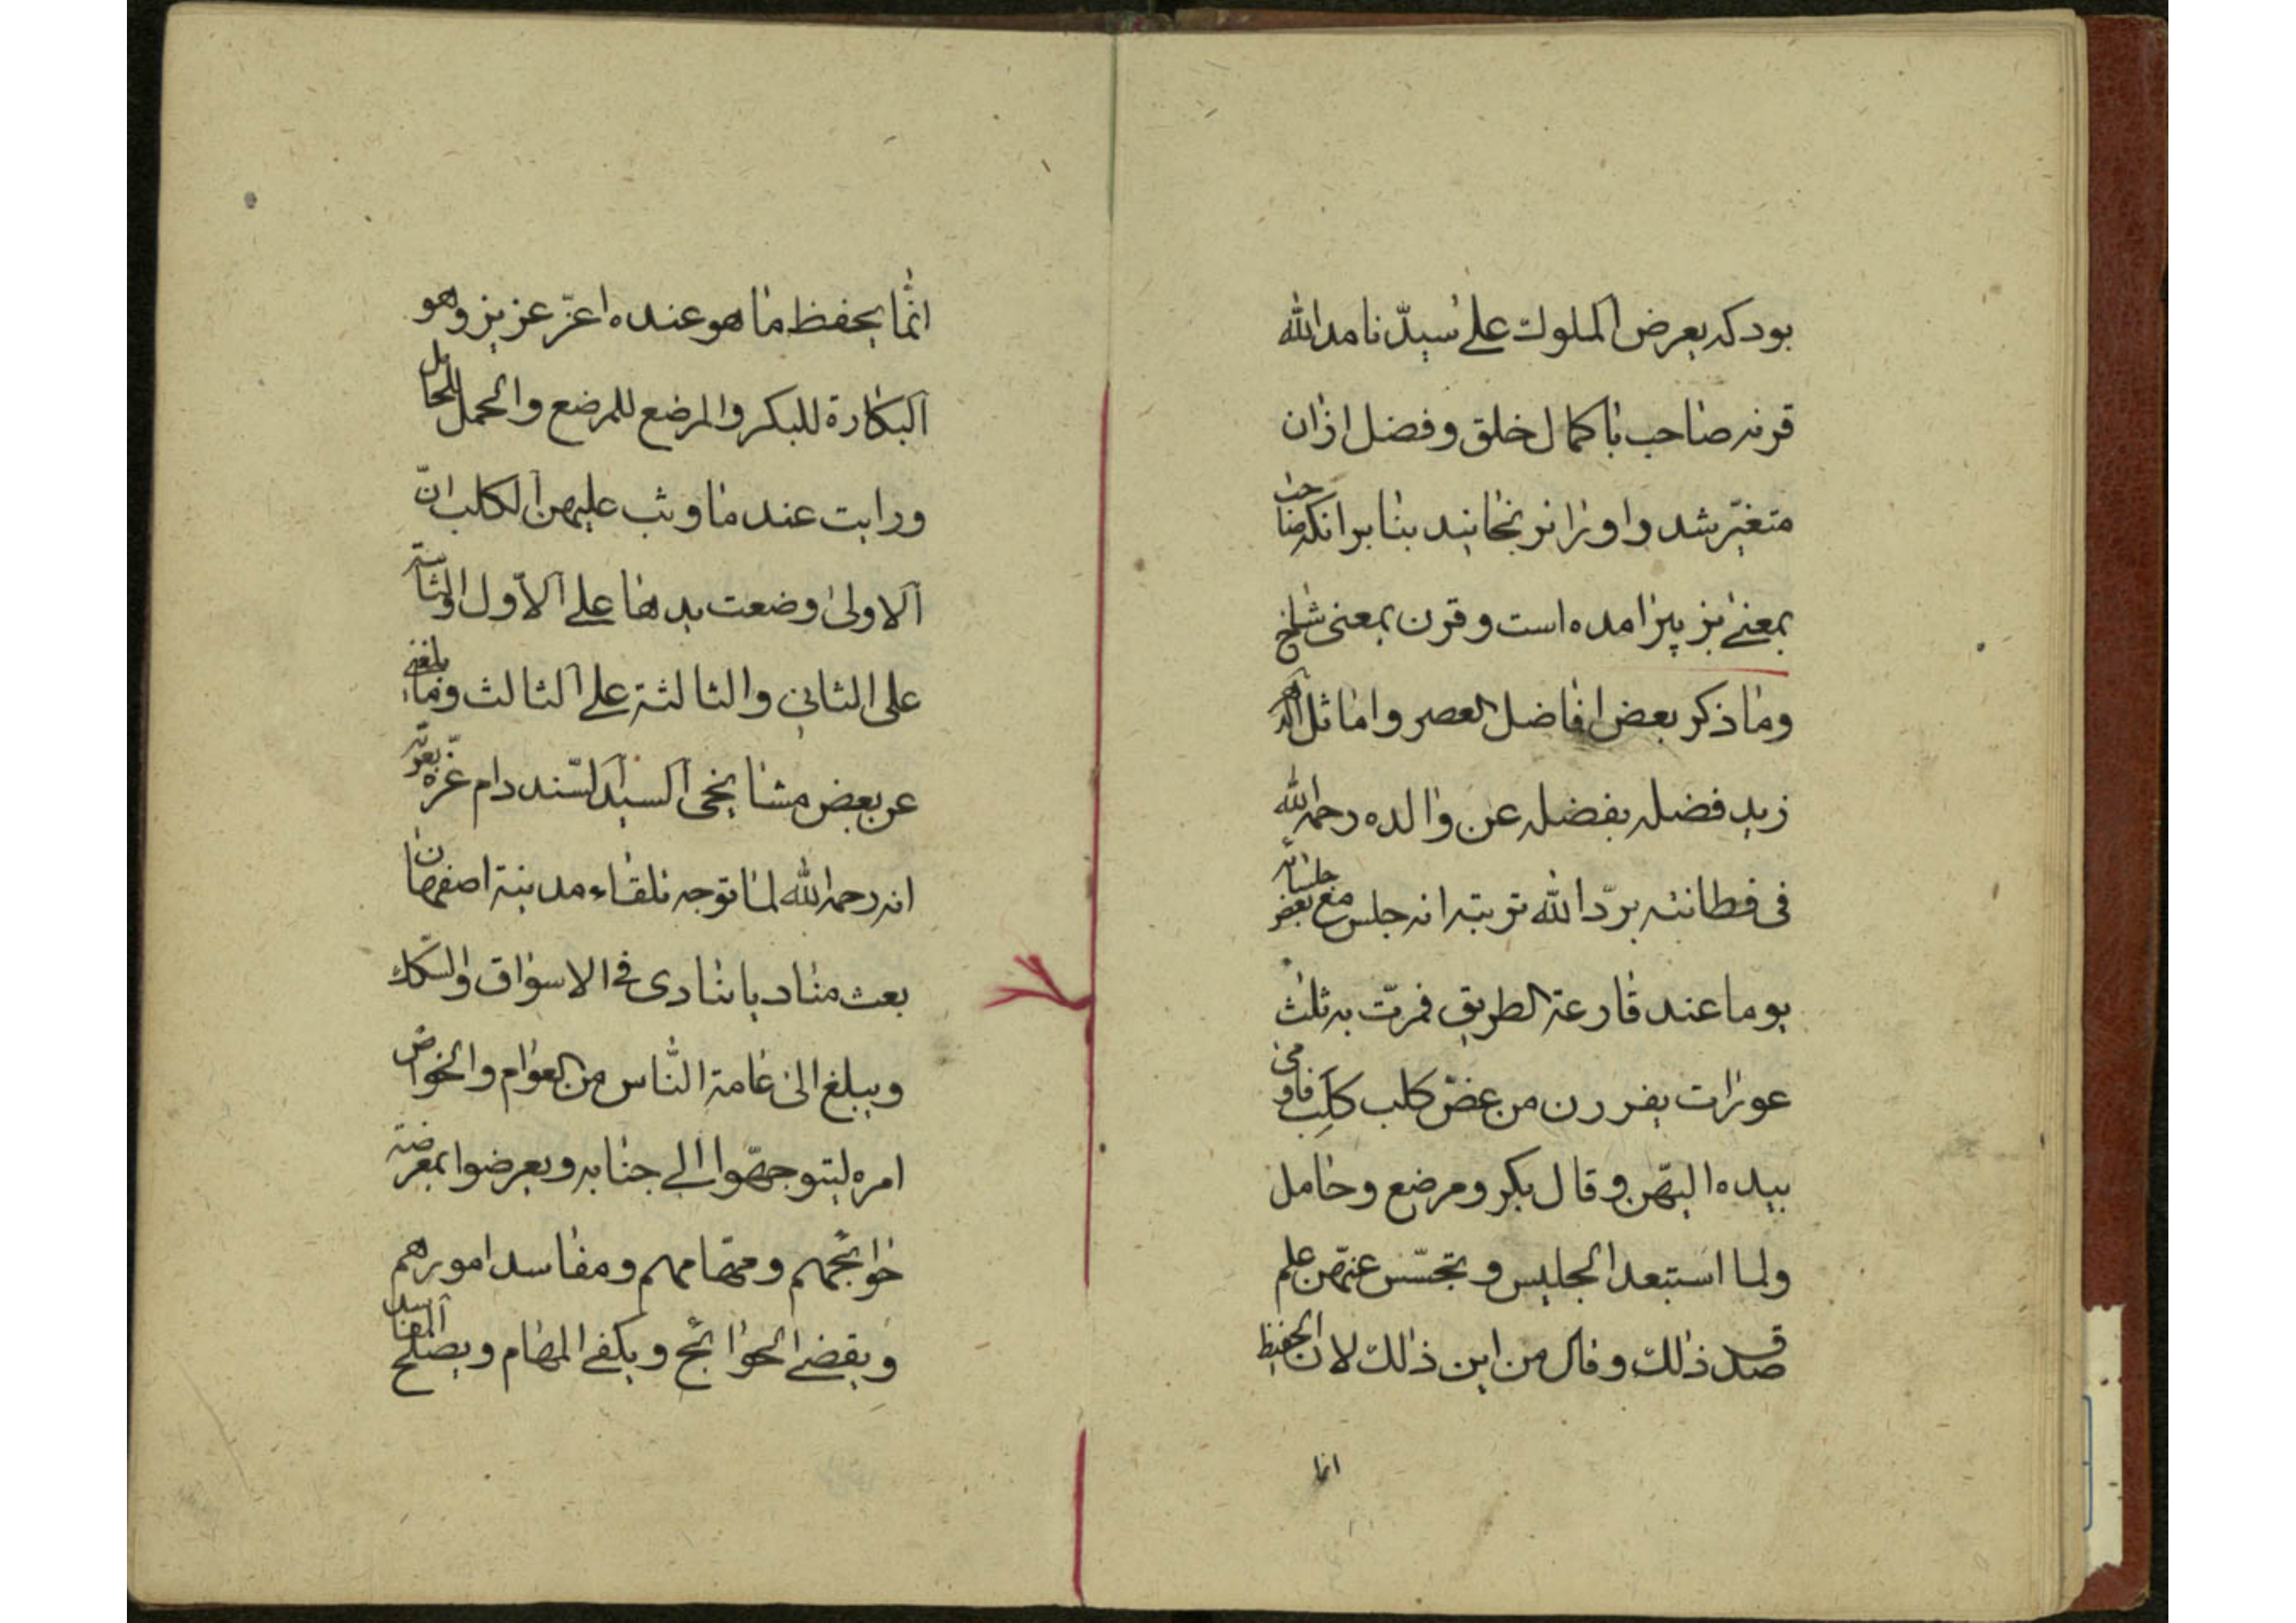 بود که یعرض المملوک علی سیدنا مد الله
قرنه صاحب با کمال خلق و فضل ازان
متغیر شد و او را نرنجانید بنا بر انکه صاحب
بمعنی بز پیر امده است و قرن بمعنی شاخ
وما ذکر بعض افاضل العصر واماثل الدهر
زید فضله بفضله عن والده رحمه الله
فی فطانته برّد الله تربته انه جلس مع بعض جلسائه
یوما عند قارعة الطریق فمرّت به ثلث
عورات یفررن من عضّ کلب کَلِب فاومی
بیده الیهنّ وقال بکر ومرضع وحامل
ولما استبعد الجلیس وتجسّس عنهنّ علم
صدق ذلک وقال من این ذلک لان الحفیظ
انما
انّما یحفظ ما هو عنده اعزّ عزیز وهو
البکارة للبکر والمرضع للمرضع والحمل للحامل
ورایت عند ما وثب علیهن الکلب انّ
الاولی وضعت یدها علی الاوّل والثانیة
علی الثانی والثالثة علی الثالث ومما بلغنی
عن بعض مشایخی السید السّند دام عزّه بعزّته
انه رحمه الله لما توجه تلقاء مدینة اصفهان
بعث منادیا ینادی فی الاسواق والسّکک
ویبلغ الی عامة النّاس من العوام والخواص
امره لیتوجّهوا الی جنابه ویعرضوا بمعرضته
حوائجهم ومهامهم ومفاسد امورهم
ویقضی الحوائج ویکفی المهام ویصلح المفاسد